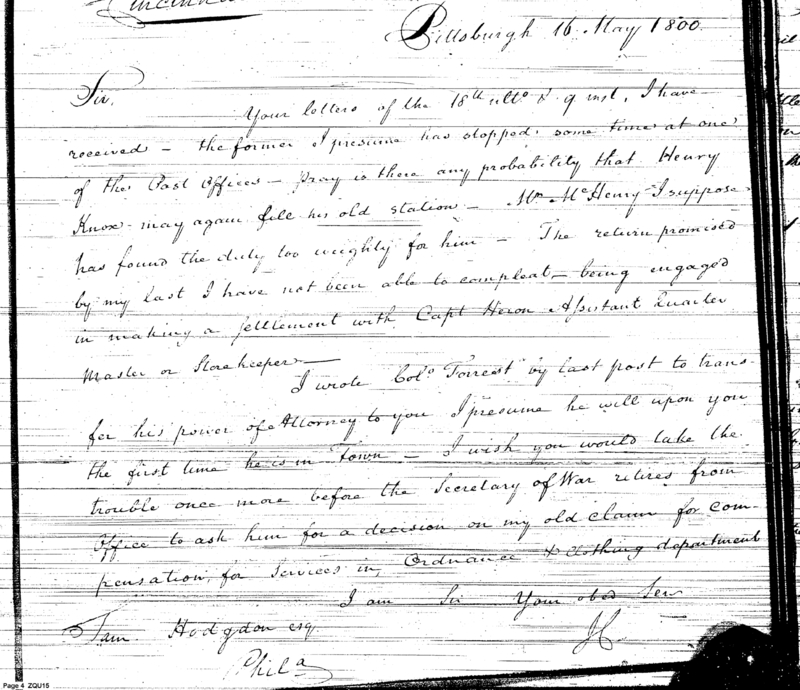 Cincinna
Pittsburgh 16 May 1800.
Sir,
Your letters of the 18th ulto & 9 inst, I have
received – the former I presume has stopped some time at one
of the Post Offices – pray is there any probability that Henry
Knox may again fill his old station – Mr McHenry I suppose
has found the duty too weighty for him – The return promised
by my last I have not been able to compleat – being engaged
in making a settlement with Capt Heron Assistant Quarter
Master or Storekeeper –
I wrote Colo Forrest by last post to trans-
fer his power of Attorney to you I presume he will upon you
the first time he is in Town – I wish you would take the
trouble once more before the Secretary of War retires from
Office to ask him for a decision on my old claim for com-
pensation, for services in, Ordnance & Clothing department
I am Sir Your obed Ser
Sam Hodgdon esq
Phila
Page 4 ZQU15